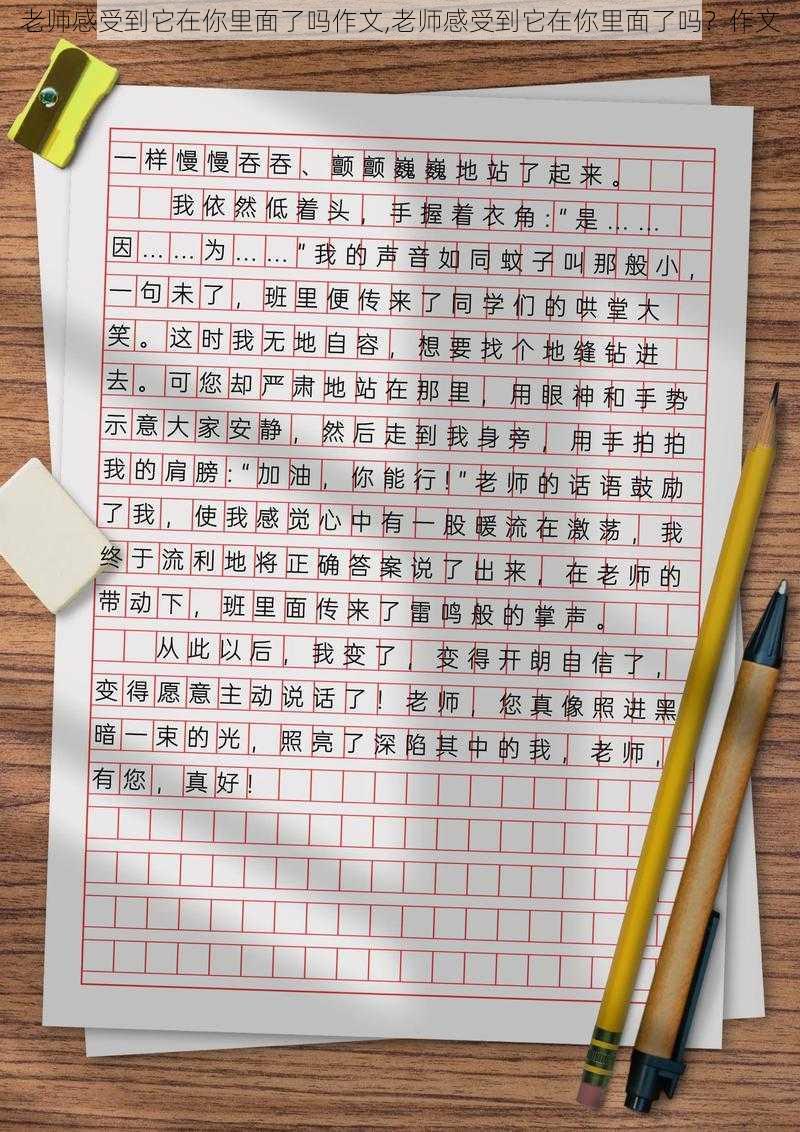 老师感受到它在你里面了吗作文,老师感受到它在你里面了吗？作文
一样慢慢吞吞、颤颤巍巍地站了起来。
我依然低着头，手握着衣角:“是……
因……为……”我的声音如同蚊子叫那般小，
一句未了，班里便传来了同学们的哄堂大
笑。这时我无地自容，想要找个地缝钻进
去。可您却严肃地站在那里，用眼神和手势
示意大家安静，然后走到我身旁，用手拍拍
我的肩膀:“加油，你能行!”老师的话语鼓励
了我，使我感觉心中有一股暖流在激荡，我
终于流利地将正确答案说了出来，在老师的
带动下，班里面传来了雷鸣般的掌声。
从此以后，我变了，变得开朗自信了，
变得愿意主动说话了！老师，您真像照进黑
暗一束的光，照亮了深陷其中的我，老师，
有您，真好！